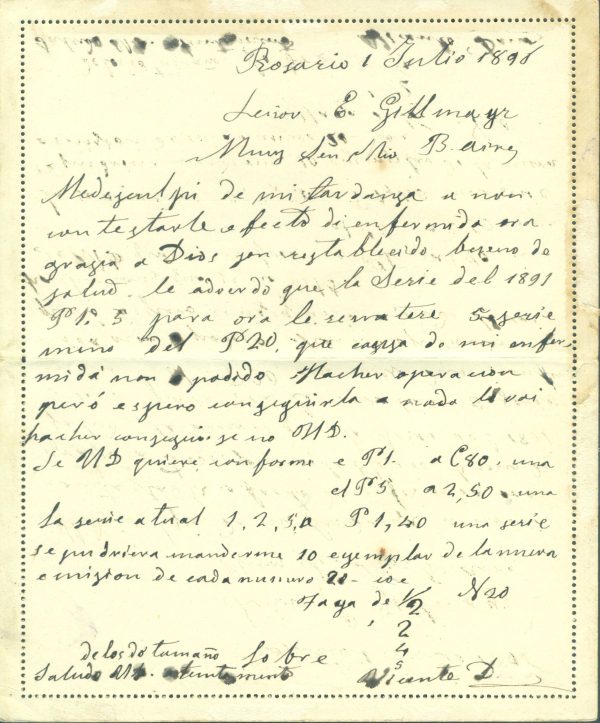 Rosario 1 Julio 1891
Señor E. Gillmayr
Muy Sen Mio B. aires
de mi tardanza a non
contestarle efecto di enfermida ora
grazia a Dios son restablecido bueno de
salud. le advierdo que la Serie del 1891
P 1. 5 para ora le serie
meno del P 20, que causa de mi enfer
mida non podido Hacher operacion
peró espero conseguirla a nada le vai
hacher conseguir se no UD.
Se UD quiere conforme e P 1. a C 80. una
el P 5 a 2,50 una
la serie atual 1, 2, 5, a P 1,40 una serie
se pudiera manderme 10 exemplar de la nueva
emision de cada numero
Faga de 1/2 N 20
2
4
5
de los do tamaño Sobre
Saludo Vicente D.